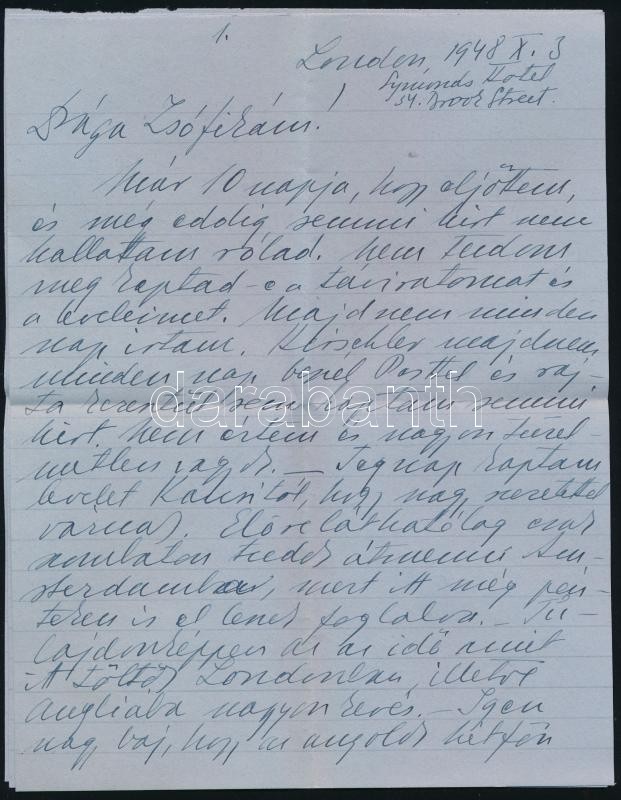 1.
London, 1948 X. 3
Symonds Hotel
34. Brook Street.
Drága Zsófikám!
Már 10 napja, hogy eljöttem,
és még eddig semmi hirt nem
hallottam rólad. Nem tudom
meg kaptad-e a táviratomat és
a leveleimet. Majdnem minden
nap irtam. Kirschler majdnem
minden nap beszél Pesttel és raj-
ta keresztül sem kaptam semmi
hirt. Nem értem és nagyon türel-
metlen vagyok. — Tegnap kaptam
levelet Katusitól, hogy nagy szeretettel
várnak. Előreláthatólag csak
szombaton tudok átmenni Am-
sterdamba, mert itt még pén-
teken is el lenek foglalva. — Tu-
lajdonképpen az az idő amit
itt töltök Londonban, illetve
Angliába nagyon kevés. — Igen
nagy baj, hogy az angolok hétfőn
darabanth